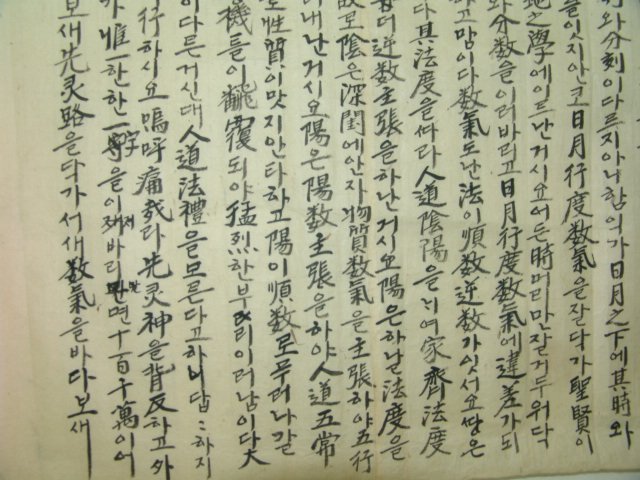 와分刻이다르지아니함의가日月之下에其時와
을잇지안코日月行度数氣을잘닥가聖賢이
地之學에이르난거시요어든時머리만잘거두워닥
와分数을이러바리고日月行度数氣에違差가되
고맘이다数氣도난法이順数逆数가잇서요땅은
다其法度을따라人道陰陽을行여家齊法度
더逆数主張을하난거시요陽은하날法度을
故로陰은深閨에안자物質数氣을主張하야五行
내난거시요陽은陽数主張을하야人道五常
로性質이맛지안타하고陽이順数로무러나갈
機들이飜覆되야猛烈한부리이러남이다大
이다른거신대人道法禮을모른다고하니답〻하지
行하시요嗚呼痛哉라先灵神을背反하고外
가惟一한한一字을이저바리면十百千萬이어
보새先灵路을닥가서새数氣을바다보새